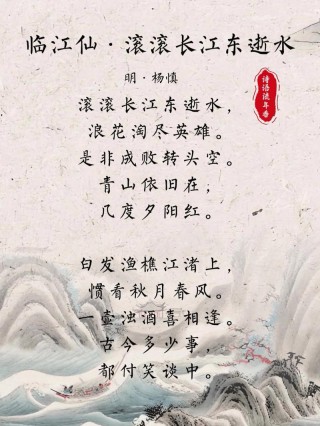 临江仙·滚滚长江东逝水
明·杨慎
诗语流年香
滚滚长江东逝水，
浪花淘尽英雄。
是非成败转头空。
青山依旧在，
几度夕阳红。
白发渔樵江渚上，
惯看秋月春风。
一壶浊酒喜相逢。
古今多少事，
都付笑谈中。